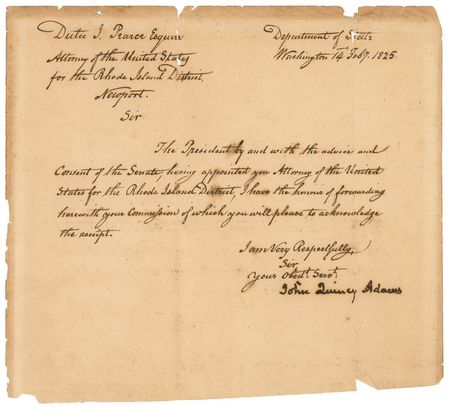 Dutee J. Pearce Esquire
Attorney of the United States
for the Rhode Island District,
Newport.
Department of State
Washington 14 Feby. 1825.
Sir
The President by and with the advice and
Consent of the Senate, having appointed you Attorney of the United
States for the Rhode Island District, I have the honour of forwarding
herewith your Commission of which you will please to acknowledge
the receipt.
I am Very Respectfully,
Sir
Your Obedt. Servt.
John Quincy Adams